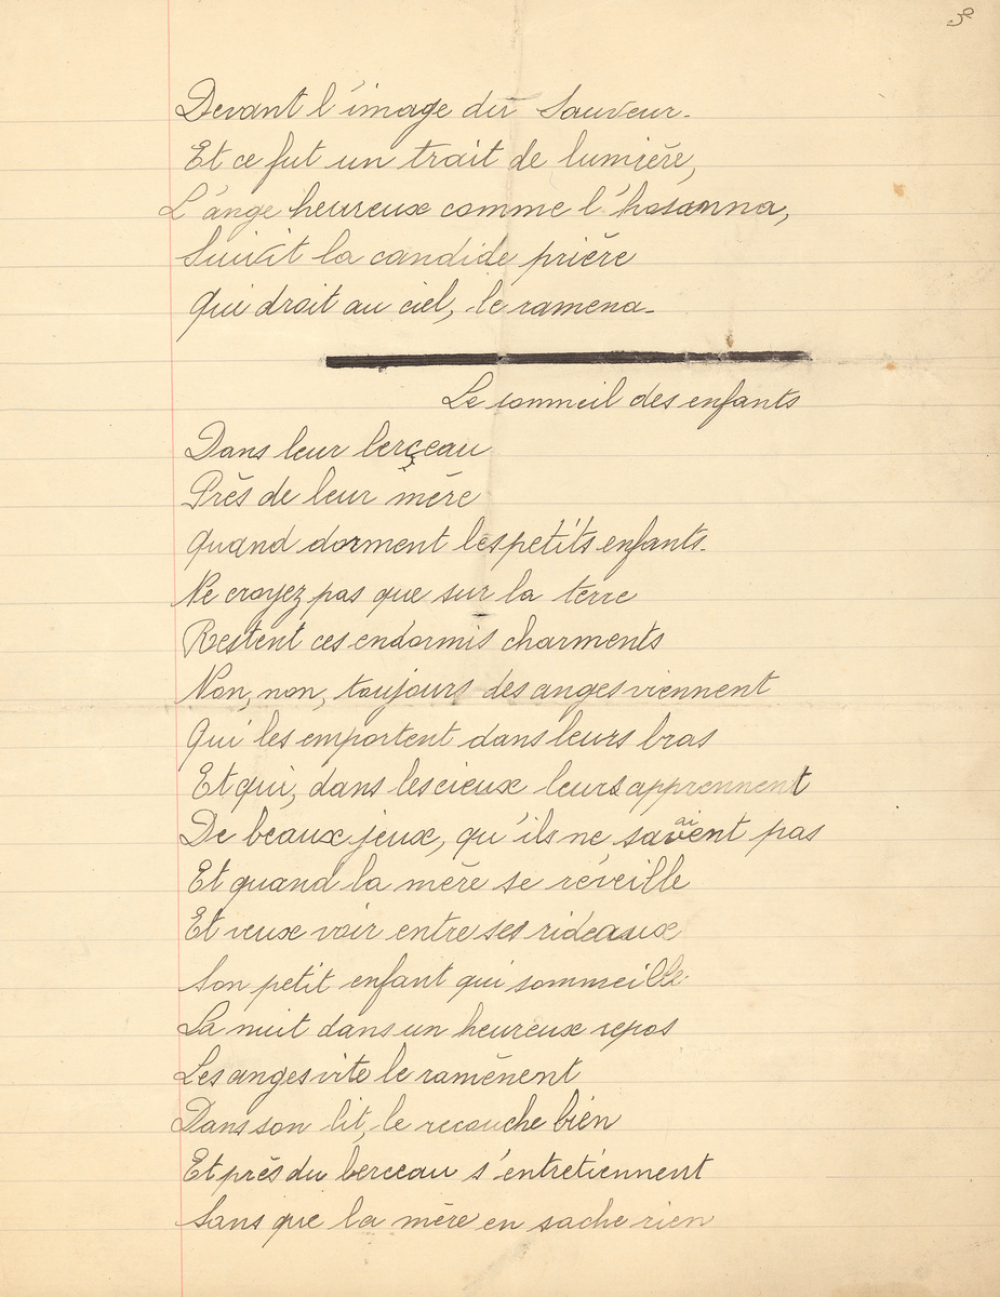 3
Devant l'image du Sauveur.
Et ce fut un trait de lumière,
L'ange heureux comme l'hosanna,
Suivit la candide prière
Qui droit au ciel, le ramena.
Le sommeil des enfants
Dans leur berceau
Près de leur mère
Quand dorment les petits enfants.
Ne croyez pas que sur la terre
Restent ces endormis charments
Non, non, toujours des anges viennent
Qui les emportent dans leurs bras
Et qui, dans les cieux leurs apprennent
De beaux jeux, qu'ils ne savaient pas
Et quand la mère se réveille
Et veux voir entre ses rideaux
Son petit enfant qui sommeille
La nuit dans un heureux repos
Les anges vite le ramènent
Dans son lit, le recouche bien
Et près du berceau s'entretiennent
Sans que la mère en sache rien